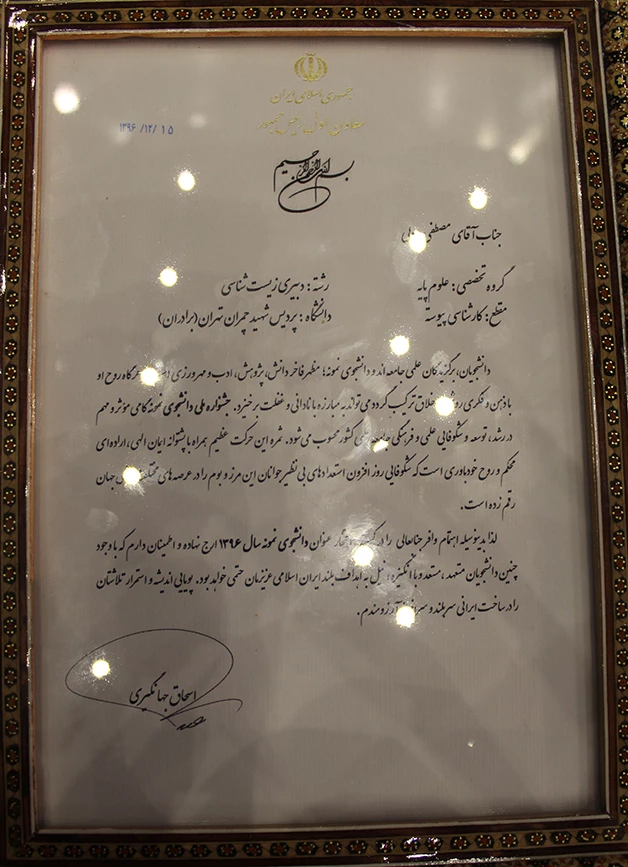 جمهوری اسلامی ایران
معاون اول رئیس جمهور
۱۳۹۶/۱۲/۱۵
بسم الله الرحمن الرحیم
جناب آقای مصطفی
گروه تخصصی: علوم پایه رشته: دبیری زیست شناسی
مقطع: کارشناسی پیوسته دانشگاه: پردیس شهید چمران تهران (برادران)
دانشجویان، برگزیدگان علمی جامعه اند و دانشجوی نمونه؛ مظهر فاخر دانش، پژوهش، ادب و مهرورزی روح او
با ذهن و فکری ترکیب گردد می تواند به مبارزه با نادانی و غفلت برخیزد. جشنواره ملی دانشجوی نمونه گامی مؤثر و مهم
در رشد، توسعه و شکوفایی علمی و فرهنگی جامعه کشور محسوب می شود. ثمره این حرکت عظیم همراه با پشتوانه ایمان الهی، اراده ای
محکم و روح خودباوری است که شکوفایی روز افزون استعدادهای بی نظیر جوانان این مرز و بوم را در عرصه های جهان
رقم زده است.
لذا بدینوسیله اهتمام وافر جنابعالی را در عنوان دانشجوی نمونه سال ۱۳۹۶ ارج نهاده و اطمینان دارم که با وجود
چنین دانشجویان متعهد، مستعد و با انگیزه، نیل به اهداف بلند ایران اسلامی عزیزمان حتمی خواهد بود. پویایی اندیشه و استمرار تلاشتان
را در ساخت ایرانی سربلند و آرزومندم.
اسحاق جهانگیری